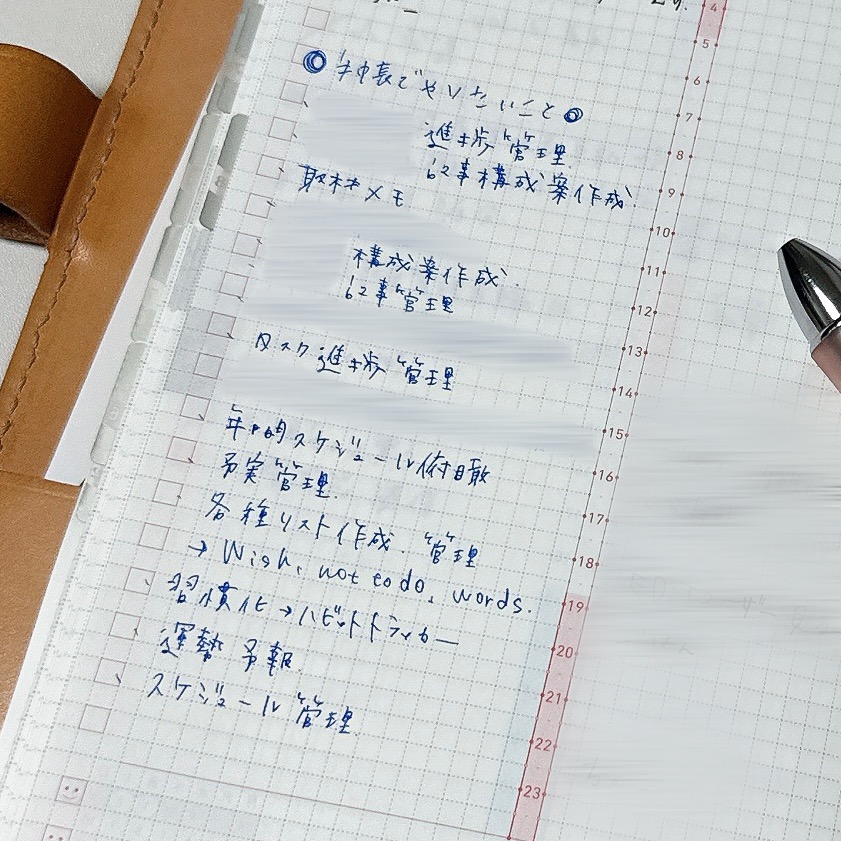 手帳でやりたいこと
進捗管理
記事構成案作成
取材メモ
構成案作成
記事管理
タスク進捗管理
年間的スケジュール俯瞰
予実管理
各種リスト作成、管理
→ Wish, not to do, words.
習慣化→ハビットトラッカー
運勢予報
スケジュール管理
4
5
6
7
8
9
10
11
12
13
14
15
16
17
18
19
20
21
22
23